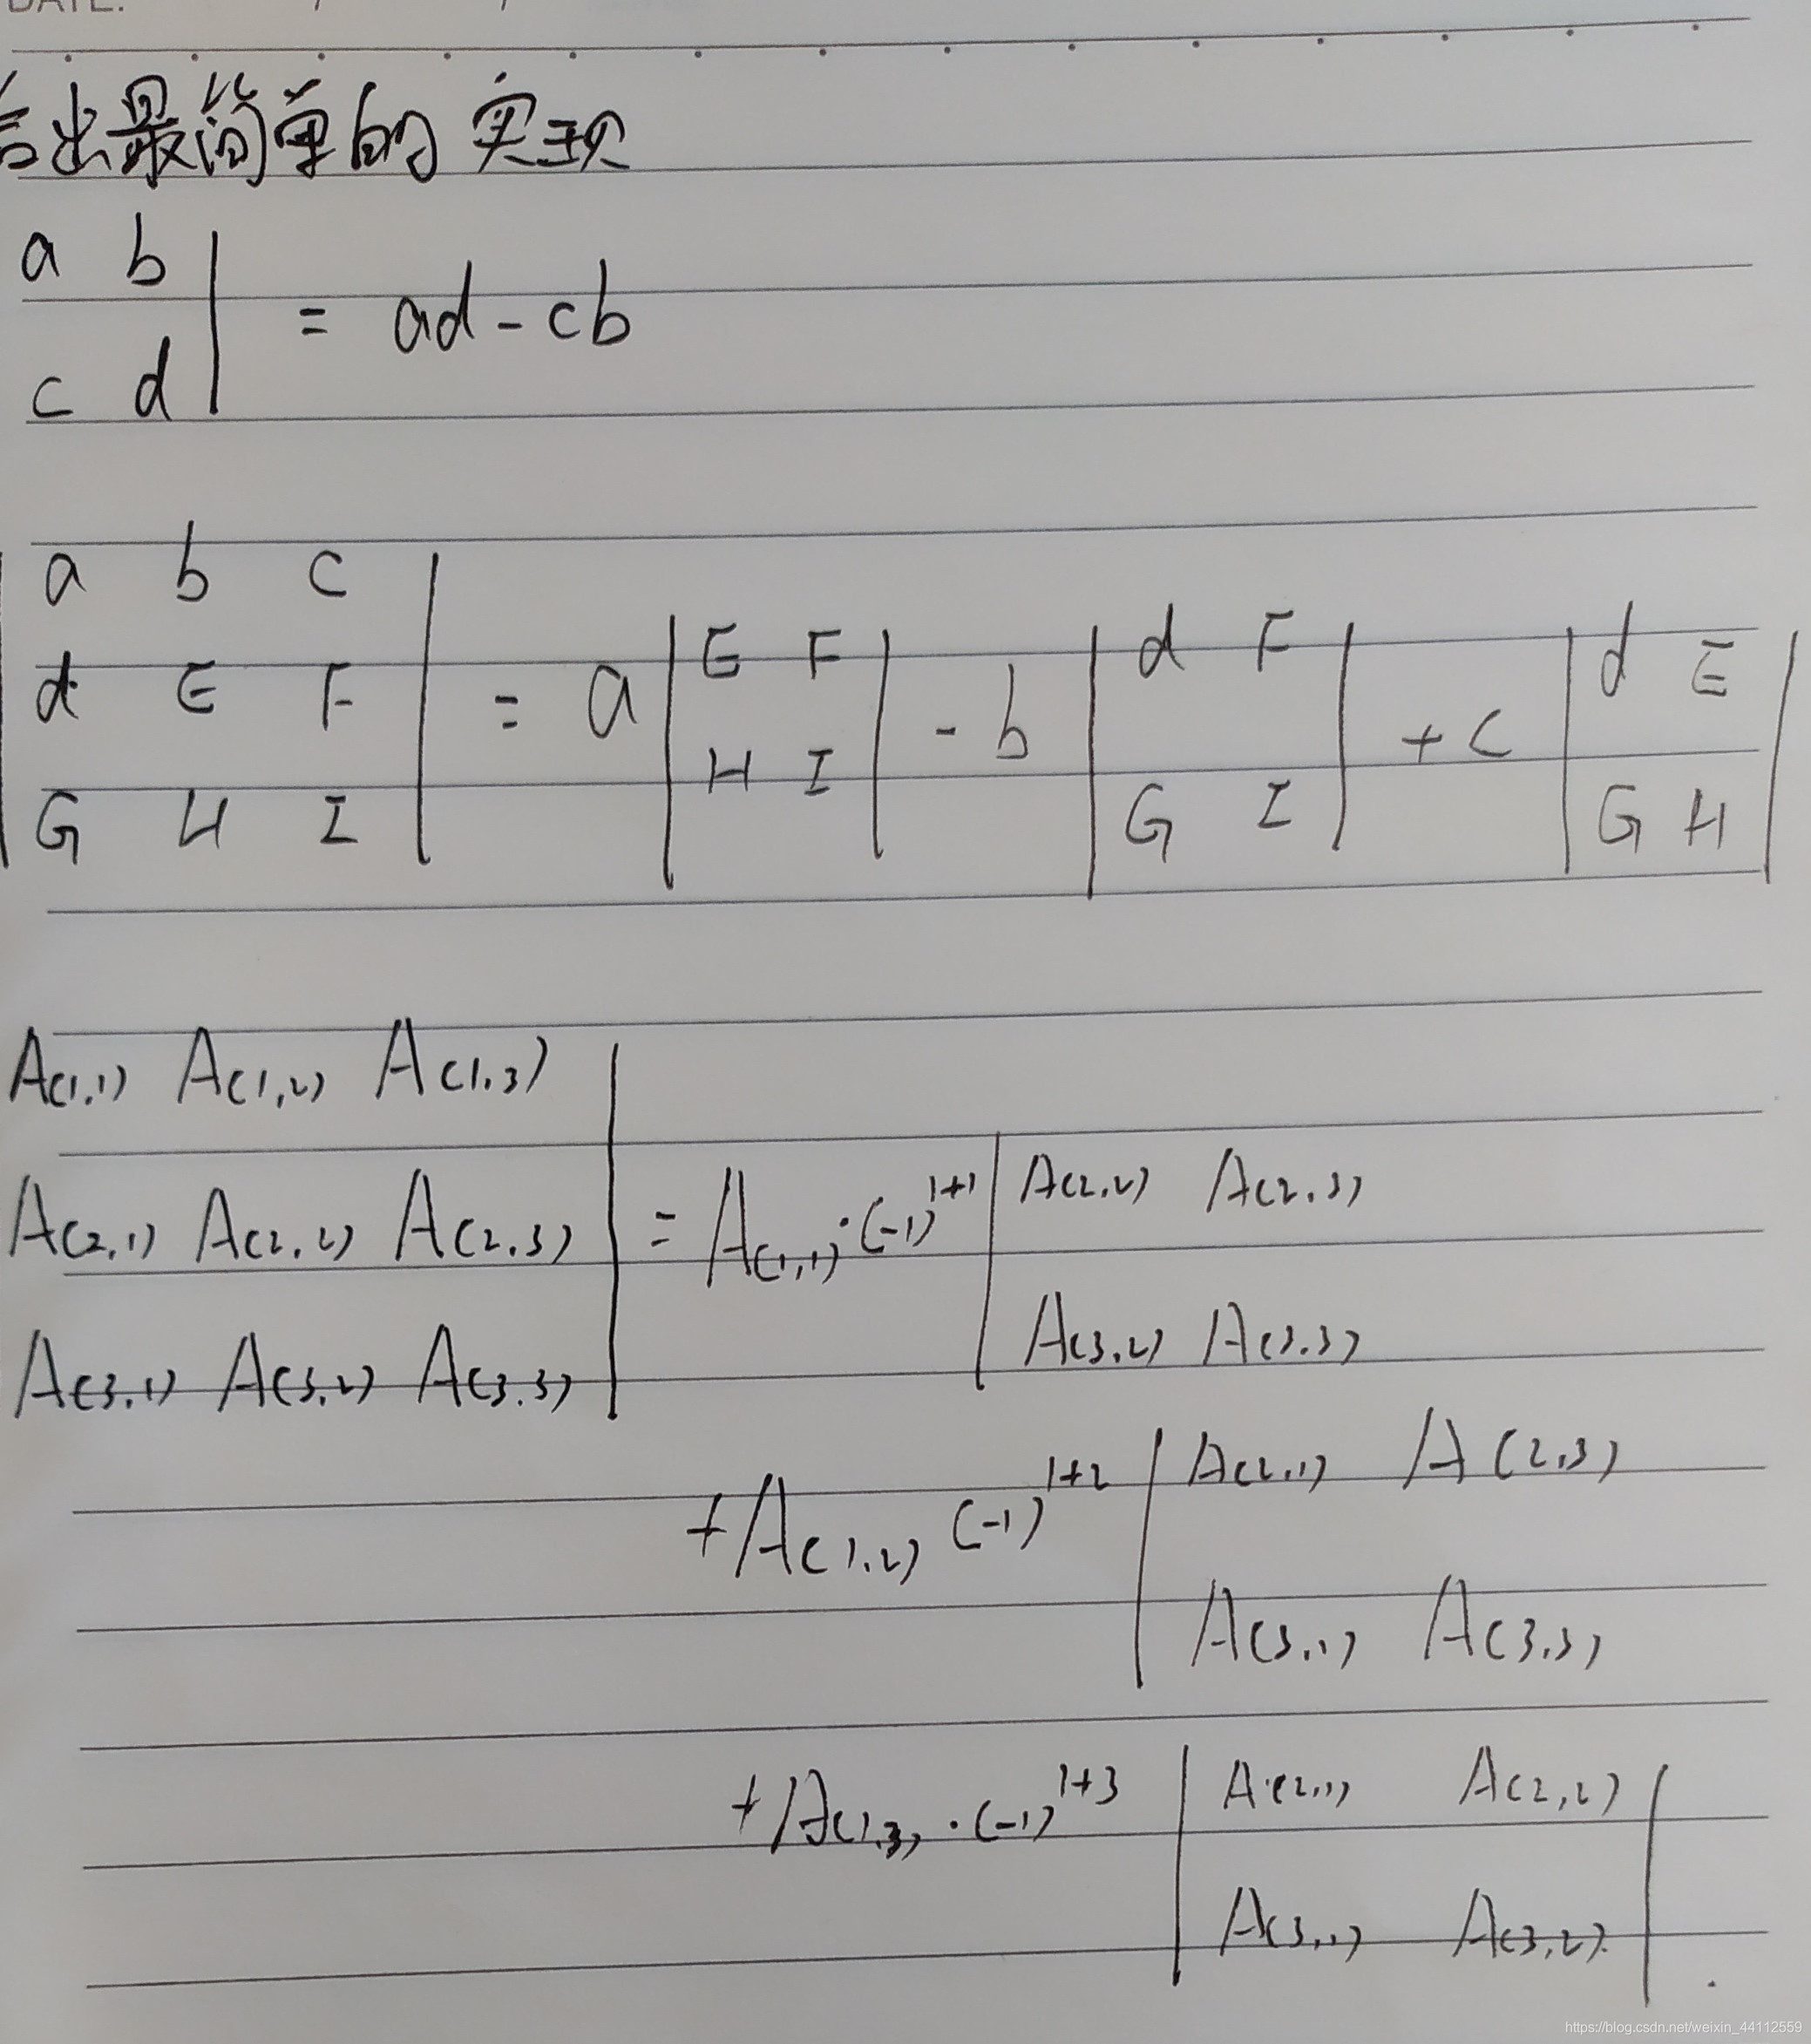 DATE:
给出最简单的 实现
a b
= ad - cb
c d
a b c
d E F = a | E F | - b | d F | + c | d E |
G H I | H I | | G I | | G H |
A(1,1) A(1,2) A(1,3)
A(2,1) A(2,2) A(2,3) | = A(1,1) · (-1)^1+1 | A(2,2) A(2,3)
A(3,1) A(3,2) A(3,3) | A(3,2) A(3,3)
+ A(1,2) (-1)^1+2 | A(2,1) A(2,3)
A(3,1) A(3,3)
+ A(1,3) · (-1)^1+3 | A(2,1) A(2,2) |
A(3,1) A(3,2) .
https://blog.csdn.net/weixin_44112559